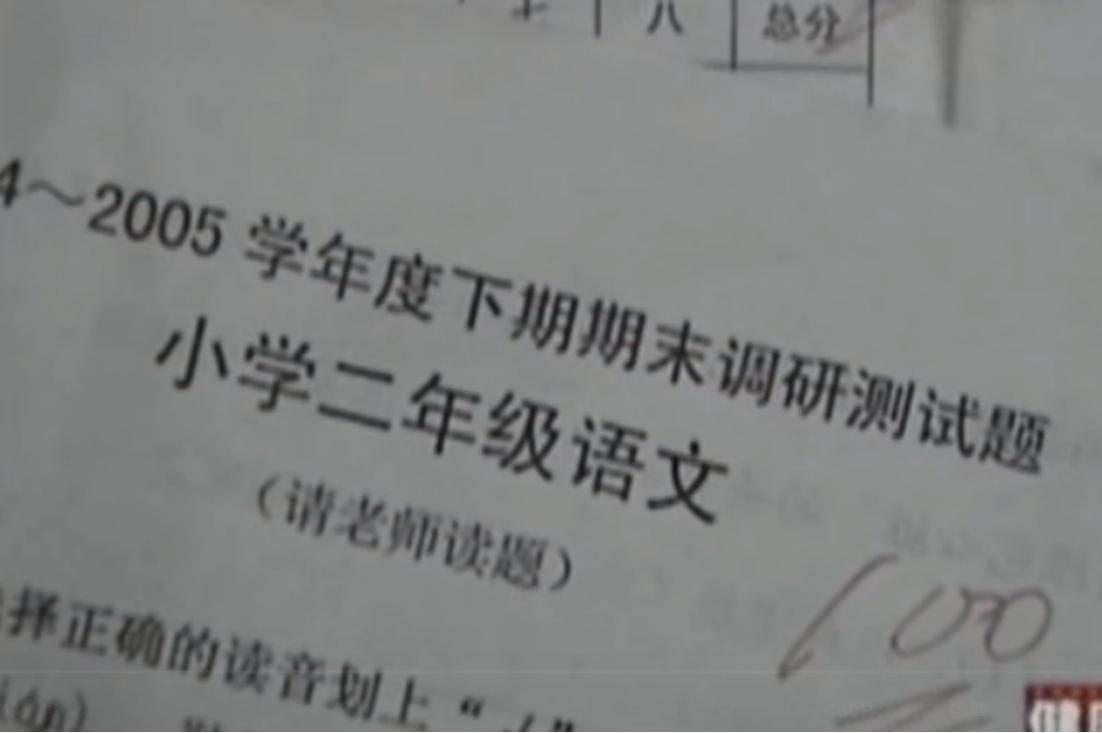 七 八 总分
4～2005 学年度下期期末调研测试题
小学二年级语文
（请老师读题）
100
择正确的读音划上“√”